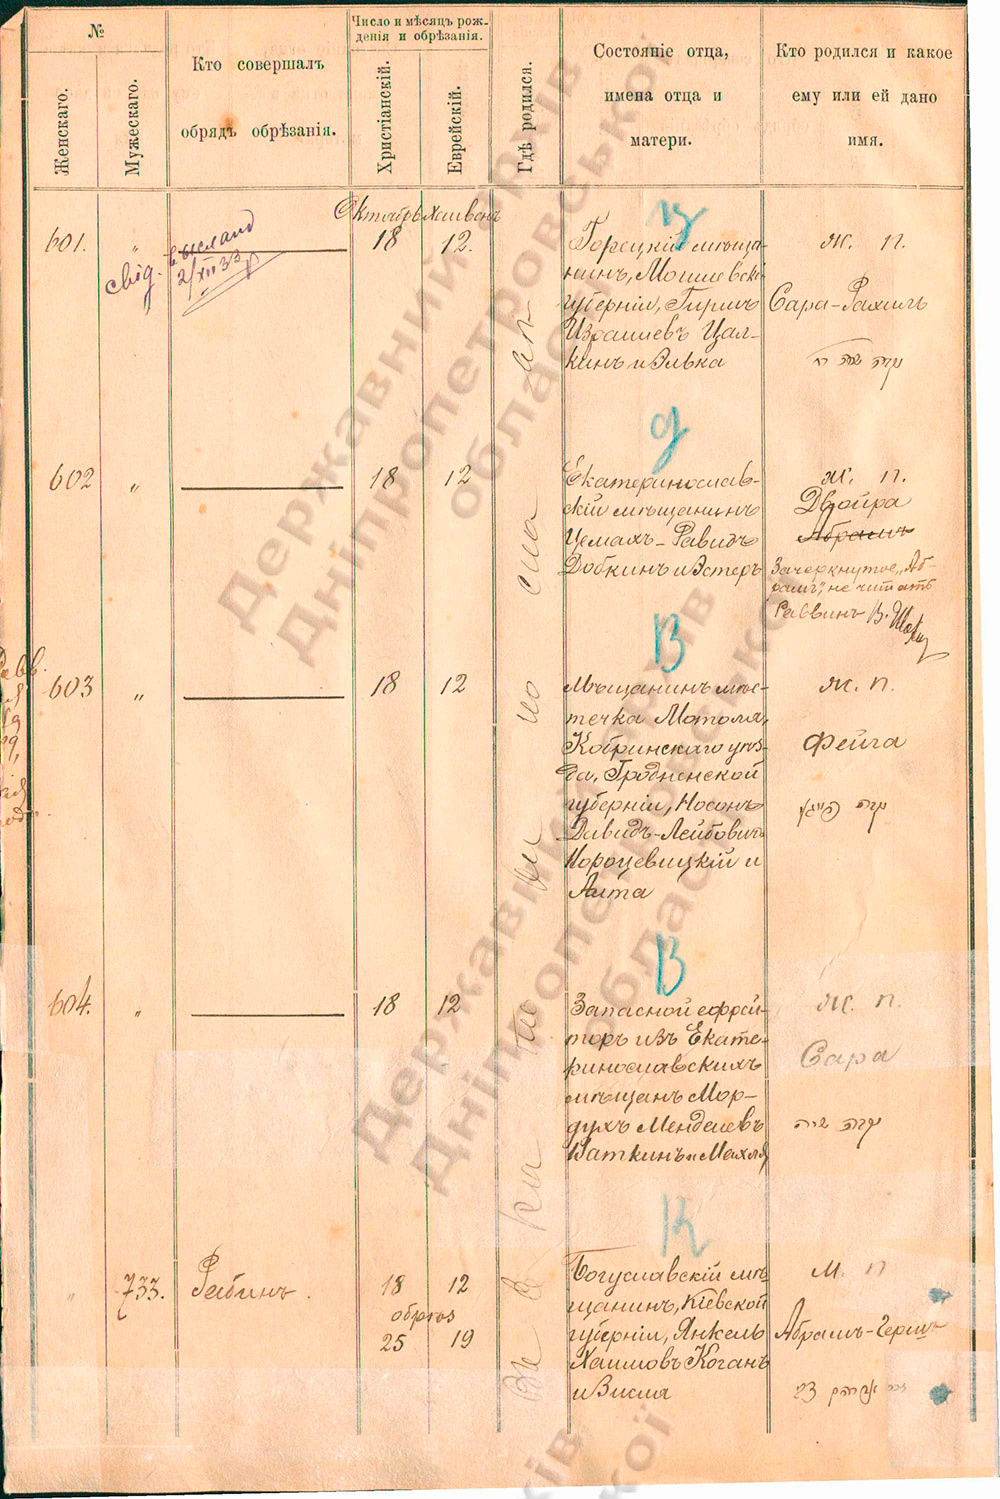 №
Женскаго.
Мужескаго.
Кто совершалъ
обрядъ обрѣзанія.
Число и мѣсяцъ рож-
денія и обрѣзанія.
Христіанскій.
Еврейскій.
Гдѣ родился.
Состояніе отца,
имена отца и
матери.
Кто родился и какое
ему или ей дано
имя.
Октябрь Хешвонъ
601.
"
свід. выслано
2/XII 33
18
12.
Горецкій мѣща-
нинъ, Могилевской
губерніи, Гиршъ
Израилевъ Цал-
кинъ и Элька
Ж. п.
Сара-Рахиль
602
"
18
12
Д
Екатеринослав-
скій мѣщанинъ
Цемахъ-Равидъ
Добкинъ и Эстеръ
Ж. п.
Двойра
Абрамъ
Зачеркнутое "Аб-
рамъ", не читать
Раввинъ В.
603
"
18
12
В
Мѣщанинъ мѣс-
течка Мотоля,
Кобринскаго уѣз-
да, Гродненской
губерніи, Носонъ
Давидъ-Лейбовичъ
и
Алта
Ж. п.
Фейга
604.
"
18
12
В
Запасной ефрей-
торъ изъ Екате-
ринославскихъ
мѣщанъ Мор-
духъ Менделевъ
Ваткинъ и Махля
Ж. п.
Сара
נקבה שרה
"
733.
Рабинъ.
18
12
обрѣз
25
19
К
Богуславскій мѣ-
щанинъ, Кіевской
губерніи, Янкель
Хаимовъ Коганъ
и Висля
М. п
Абрамъ-Гершъ
Державний архів
Дніпропетровської
області
Державний архів
Дніпропетровської
області